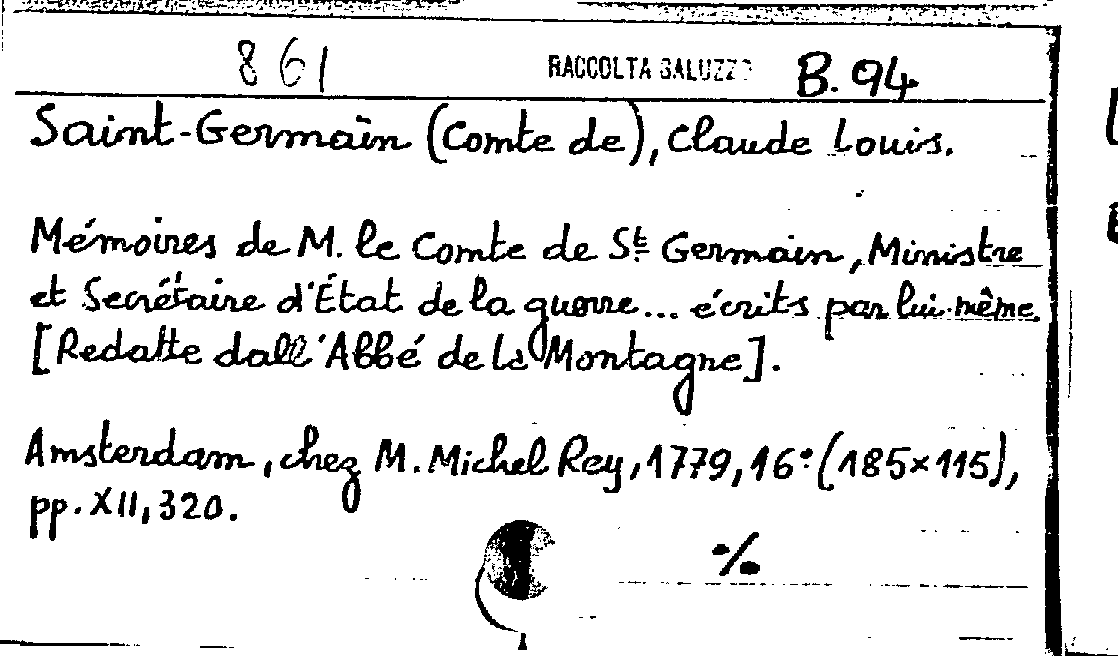 861 RACCOLTA SALUZZO B.94
Saint-Germain (Comte de), Claude Louis.
Mémoires de M. le Comte de St Germain, Ministre
et Secrétaire d'État de la guerre... écrits par lui-même
[Redatte dall'Abbé de la Montagne].
Amsterdam, chez M. Michel Rey, 1779, 16° (185×115),
pp. XII, 320.
·/.